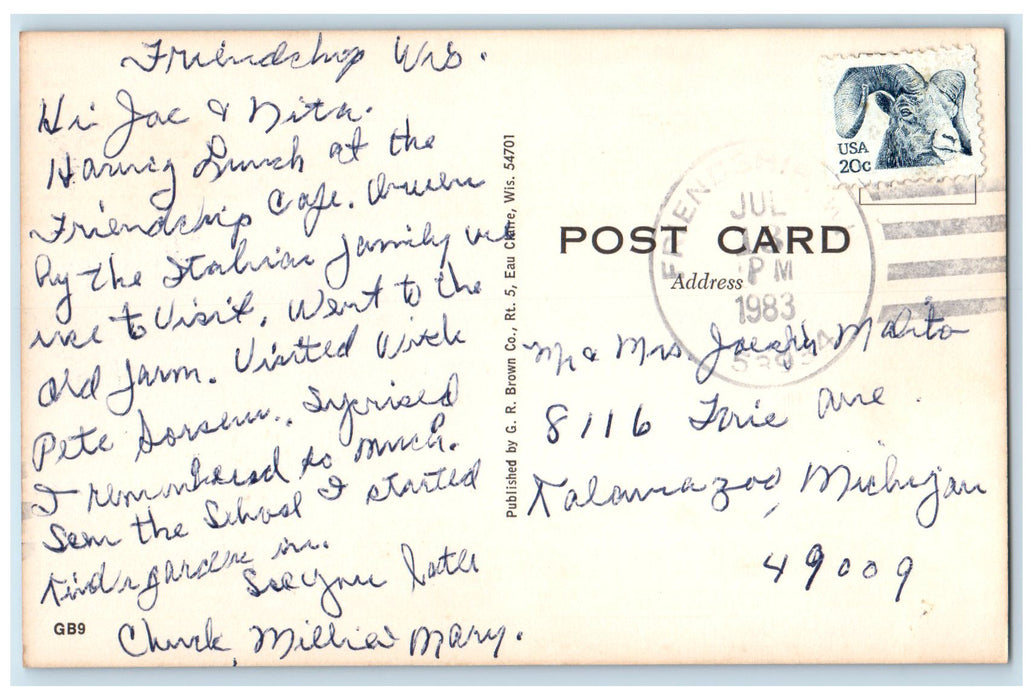 Friendship Wis.
Hi Joe & Nita.
Having Lunch at the
Friendship Cafe. Owned
by the Italian family we
use to Visit. Went to the
old farm. Visited with
Pete Sorsen.. Syprised
I remembered so much.
Seen the School I started
Kindergarden in.
See you later
Chuck, Millie & Mary.
GB9
Published by G. R. Brown Co., Rt. 5, Eau Claire, Wis. 54701
USA
20c
FRIENDSHIP
JUL
PM
1983
53934
POST CARD
Address
Mr & Mrs. Joseph Malito
8116 Ave.
Kalamazoo, Michigan
49009